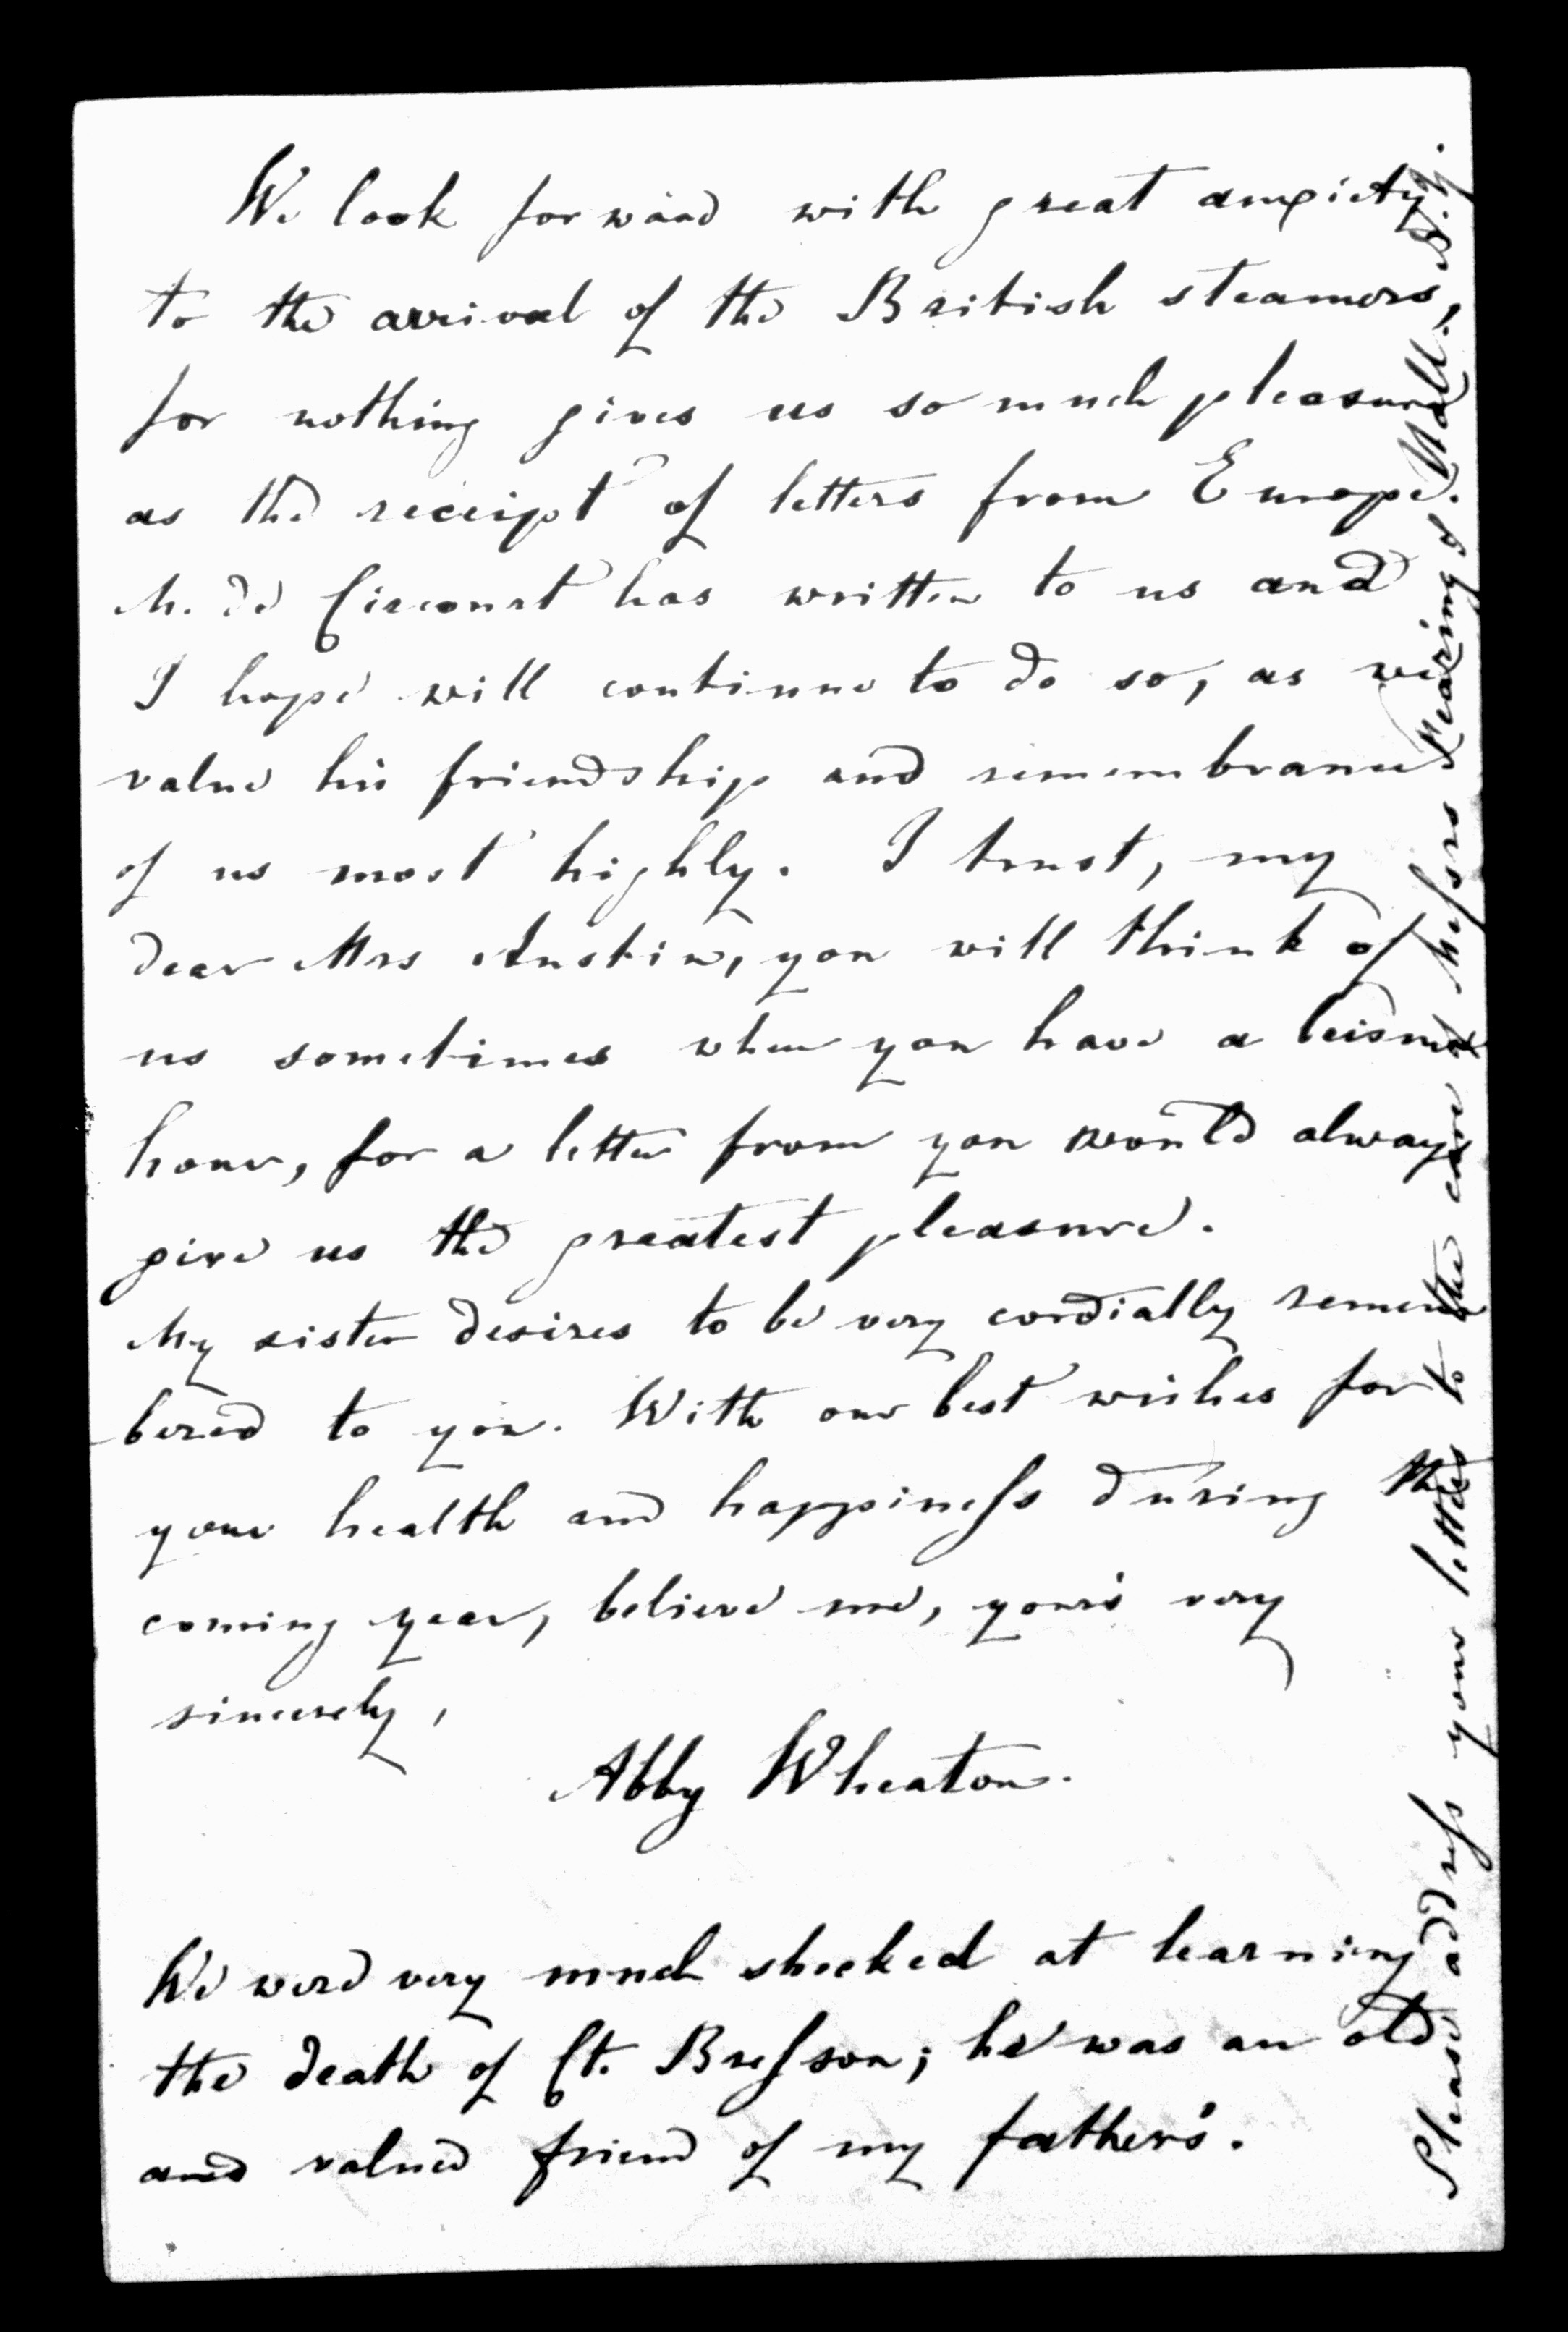 We look forward with great anxiety
to the arrival of the British steamers,
for nothing gives us so much pleasure
as the receipt of letters from Europe.
M. de Circourt has written to us and
I hope will continue to do so, as we
value his friendship and remembrance
of us most highly. I trust, my
dear Mrs Austin, you will think of
us sometimes when you have a leisure
hour, for a letter from you would always
give us the greatest pleasure.
My sister desires to be very cordially remem
bered to you. With our best wishes for
your health and happineſs during the
coming year, believe me, your's very
sincerely,
Abby Wheaton.
We were very much shocked at learning
the death of Ct. Breſson; he was an old
and valued friend of my father's.
Please addreſs your letters to the care of Meſsrs Wall. N.Y.